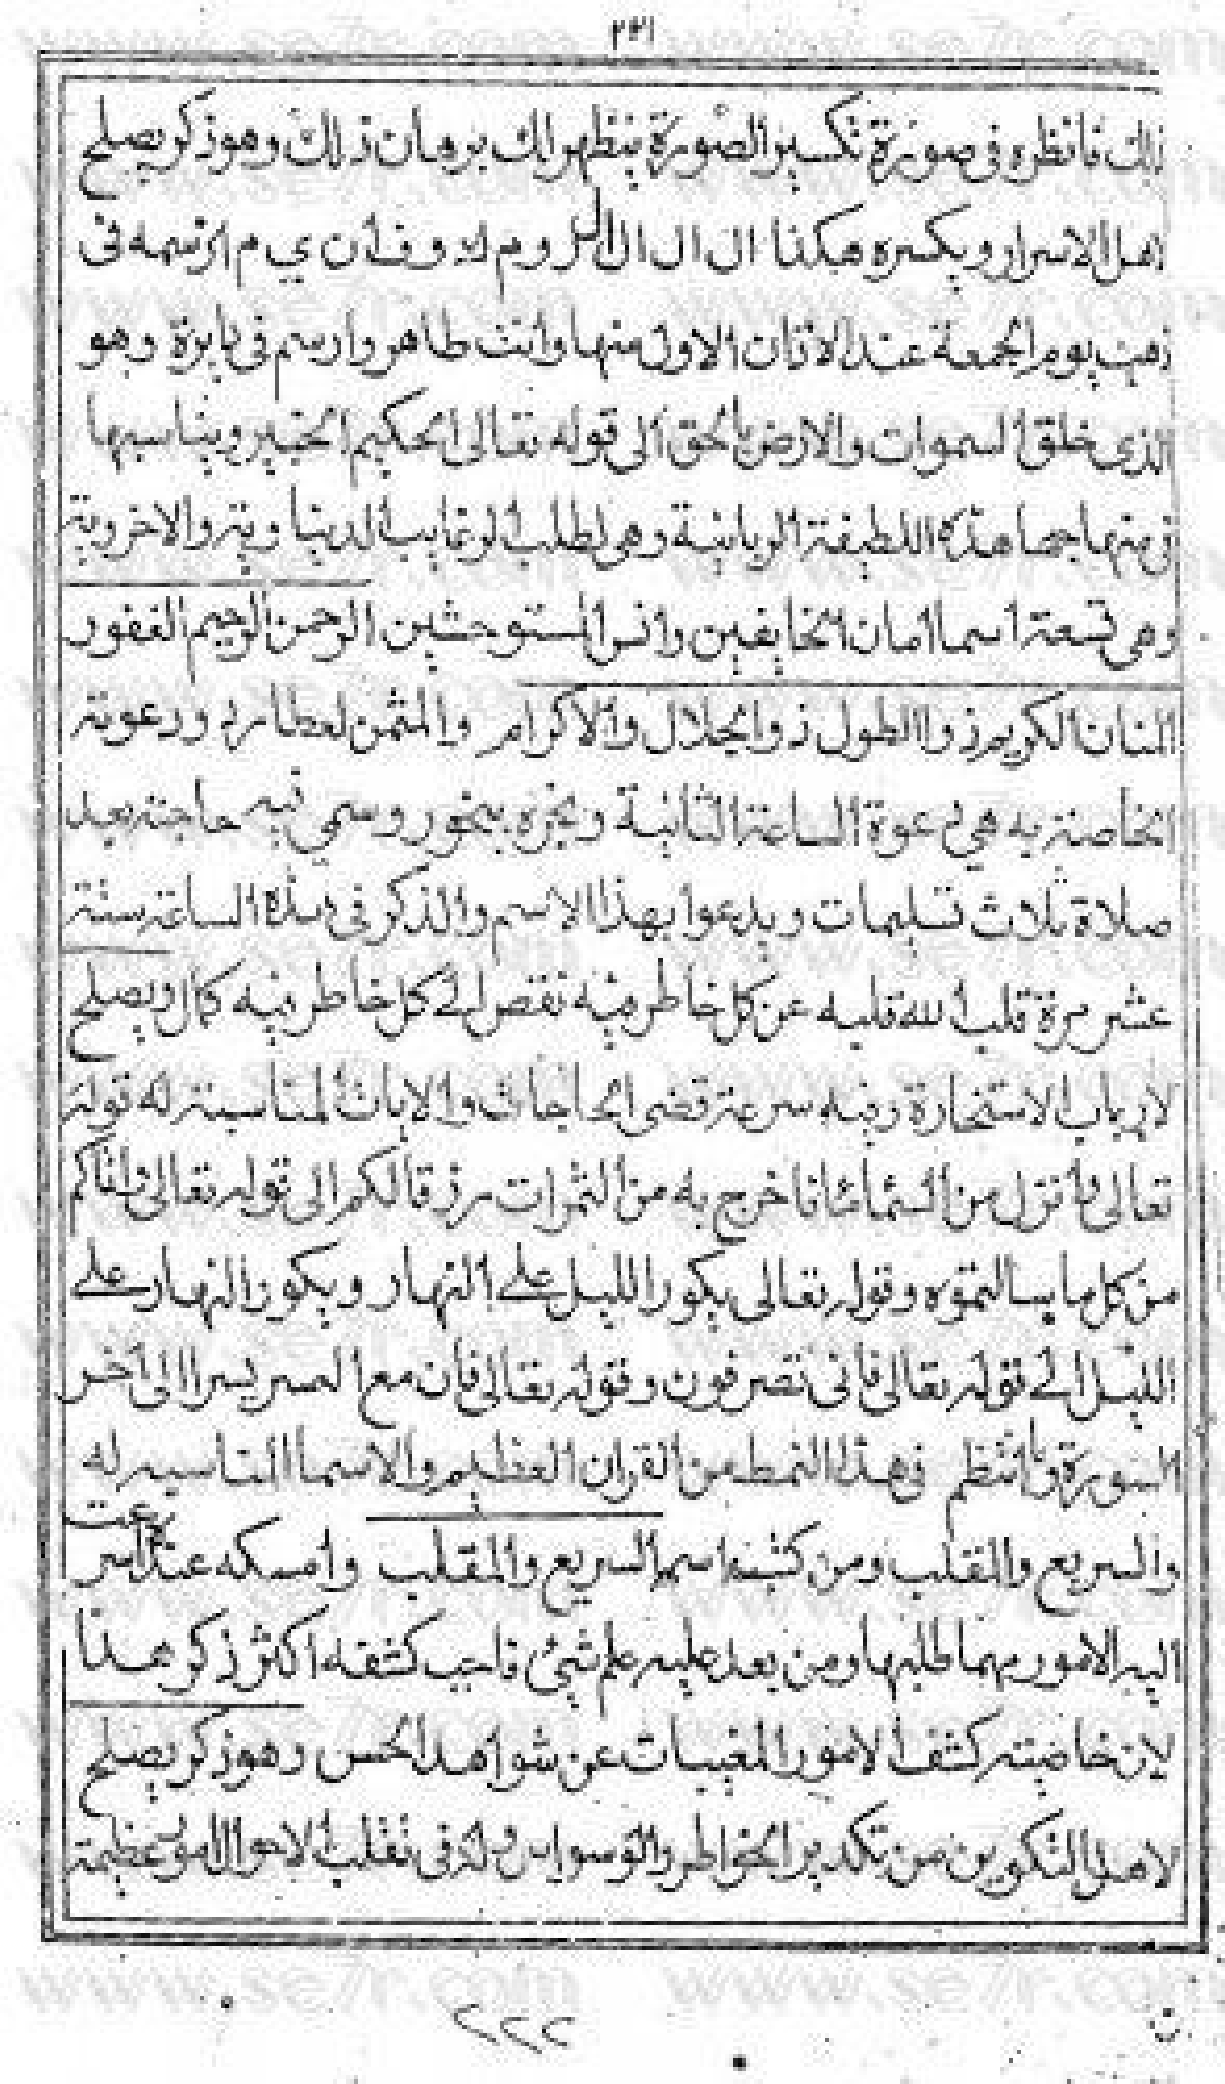 ٢٢١
ذلك فانظره فى صورة تكسير الصورة يظهر لك برهان ذلك وهو ذكر يصلح
اهل الاسرار ويكسره هكذا ال ال ال ال ر و م ى م ارسمه فى
ذهب يوم الجمعة عند الاذان الاول منها وانت طاهر وارسم فى دايرة وهو
الذى خلق السموات والارض بالحق الى قوله تعالى الحكيم الخبير ويناسبها
هذه اللطيفة الربانية وهى لطلب الرغايب الدنياوية والاخروية
وهى تسعة اسما امان الخايفين وانس المستوحشين الرحمن الرحيم الغفور
المنان الكريم ذوا الطول ذوا الجلال والاكرام والمثمن لعطارد ودعوته
الخاصة به هى دعوة الساعة الثانية وبخره ببخور وسمى فيه حاجته بعد
صلاة ثلاث تسليمات ويدعوا بهذا الاسم والذكر فى هذه الساعة ستة
عشر مرة قلب الله قلبه عن كل خاطر فيه نقص الى كل خاطر فيه كمال ويصلح
لارباب الاستخارة وفيه سرعة قضى الحاجات والايات المناسبة له قوله
تعالى وانزل من السما ماء فاخرج به من الثمرات رزقا لكم الى قوله تعالى واتاكم
من كل ما سالتموه وقوله تعالى يكور الليل على النهار ويكور النهار على
الليل الى قوله تعالى فانى تصرفون وقوله تعالى فان مع العسر يسرا الى اخر
السورة وما انتظم فى هذا النمط من القران العظيم والاسما المناسبه له
والسريع والمقلب ومن كتب اسم السريع والمقلب وامسكه عنده اسرعت
اليه الامور مهما طلبها ومن بعد عليه علم شئ فاحب كشفه اكثر ذكر هذا
لان خاصيته كشف الامور المغيبات عن شواهد الحس وهو ذكر يصلح
لاهل التكوين من تكدير الخواطر والوسواس وله فى تقلب الاحوال امور عظيمة
٢٢٢